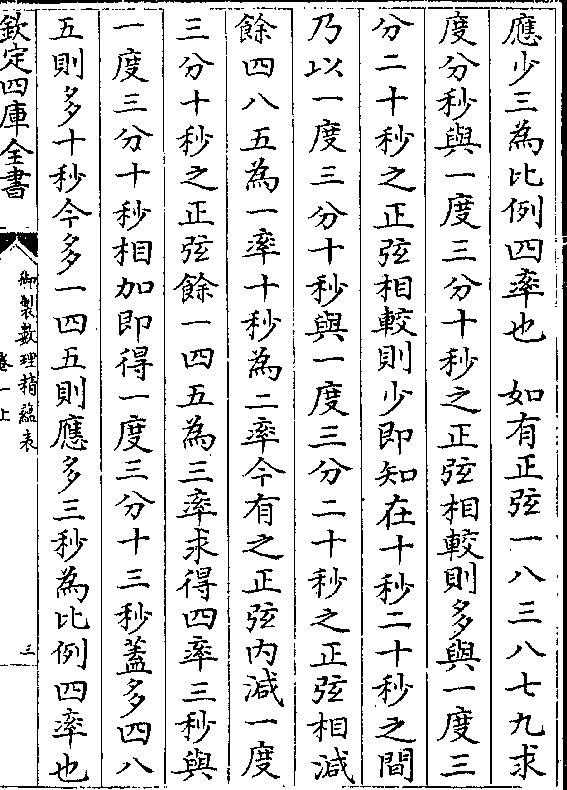 應少三為比例四率也　如有正弦一八三八七九求
度分秒與一度三分十秒之正弦相較則多與一度三
分二十秒之正弦相較則少即知在十秒二十秒之間
乃以一度三分十秒與一度三分二十秒之正弦相減
餘四八五為一率十秒為二率今有之正弦内減一度
三分十秒之正弦餘一四五為三率求得四率三秒與
一度三分十秒相加即得一度三分十三秒蓋多四八
五則多十秒今多一四五則應多三秒為比例四率也
欽定四庫全書
御製數理精蘊表
卷一上
三